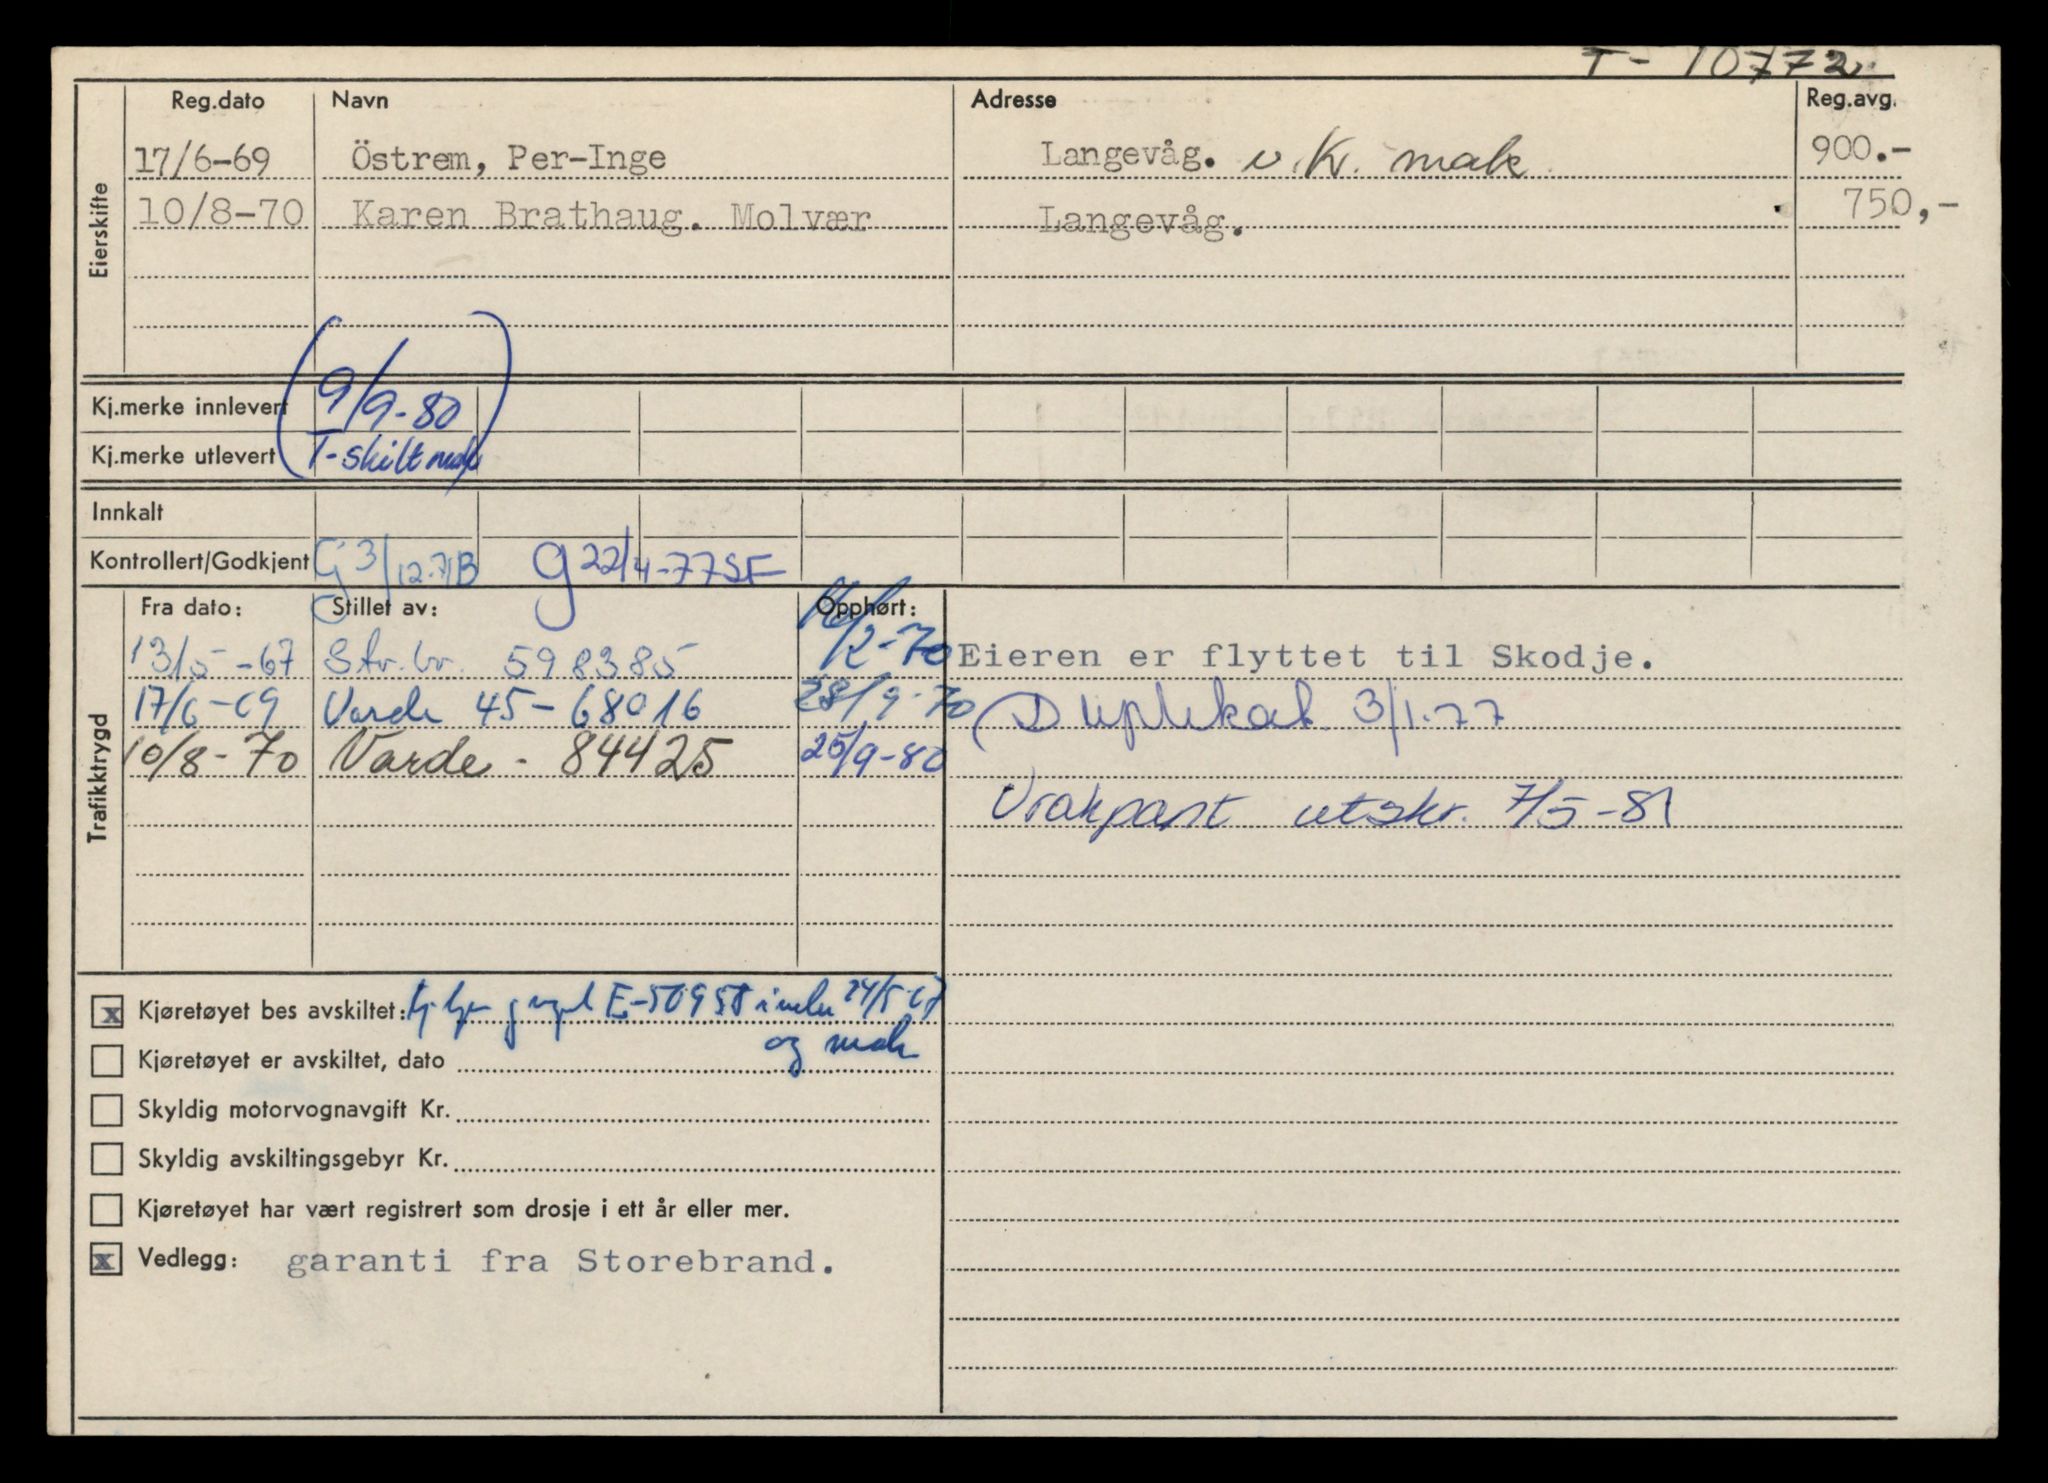 T- 10772
Reg.dato Navn Adresse Reg.avg.
17/6-69 Östrem, Per-Inge Langevåg. v. Kr. mak 900.-
10/8-70 Karen Brathaug. Molvær Langevåg. 750,-
Eierskifte
Kj.merke innlevert 9/9-80
Kj.merke utlevert T-skilt mak
Innkalt
Kontrollert/Godkjent G 3/12-71B g 22/4-77SF
Fra dato: Stillet av: Opphørt:
13/5-67 Str.br. 598385 /2-70 Eieren er flyttet til Skodje.
17/6-69 Varde 45-68016 28/9-70 Duplikat 3/1-77
10/8-70 Varde - 84425 25/9-80
Vrakpant utskr. 7/5-81
Trafikktrygd
x Kjøretøyet bes avskiltet: E-50958 24/5-67
og mak
Kjøretøyet er avskiltet, dato
Skyldig motorvognavgift Kr.
Skyldig avskiltingsgebyr Kr.
Kjøretøyet har vært registrert som drosje i ett år eller mer.
x Vedlegg: garanti fra Storebrand.